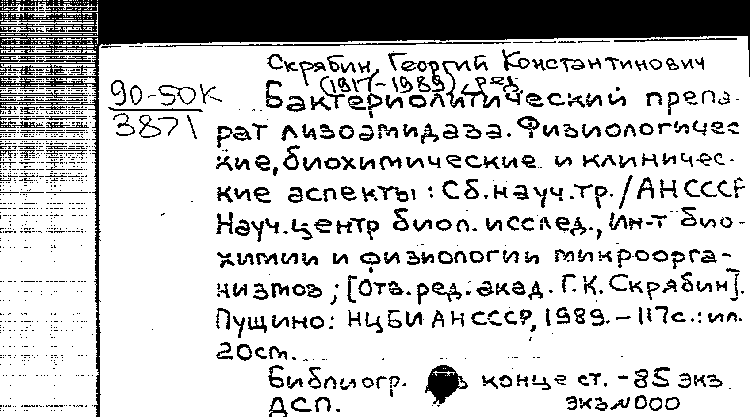 Скрябин, Георгий Константинович
(1917-1989), ред.
90-50К
3871
Бактериолитический препа-
рат лизоамидаза. Физиологичес-
кие, биохимические и клиничес-
кие аспекты: Сб. науч. тр. / АН СССР
Науч. центр биол. исслед., Ин-т био-
химии и физиологии микроорга-
низмов; [Отв. ред. акад. Г.К. Скрябин].
Пущино: НЦБИ АН СССР, 1989. - 117с.: ил.
20см.
Библиогр. в конце ст. - 85 экз
ДСП. экз N000